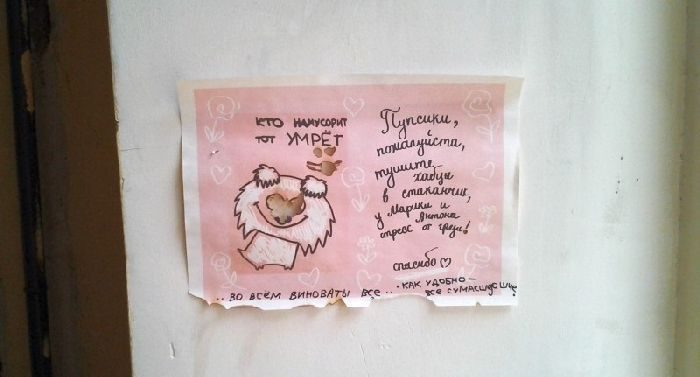 КТО НАМУСОРИТ
ТОТ УМРЁТ
Пупсики,
пожалуйста,
тушите
хабцы
в стаканчик,
у Марики и
Антона
стресс от грязи!
спасибо
..ВО ВСЕМ ВИНОВАТЫ ВСЕ..
.КАК УДОБНО—
ВСЕ СУМАСШЕДШИЕ